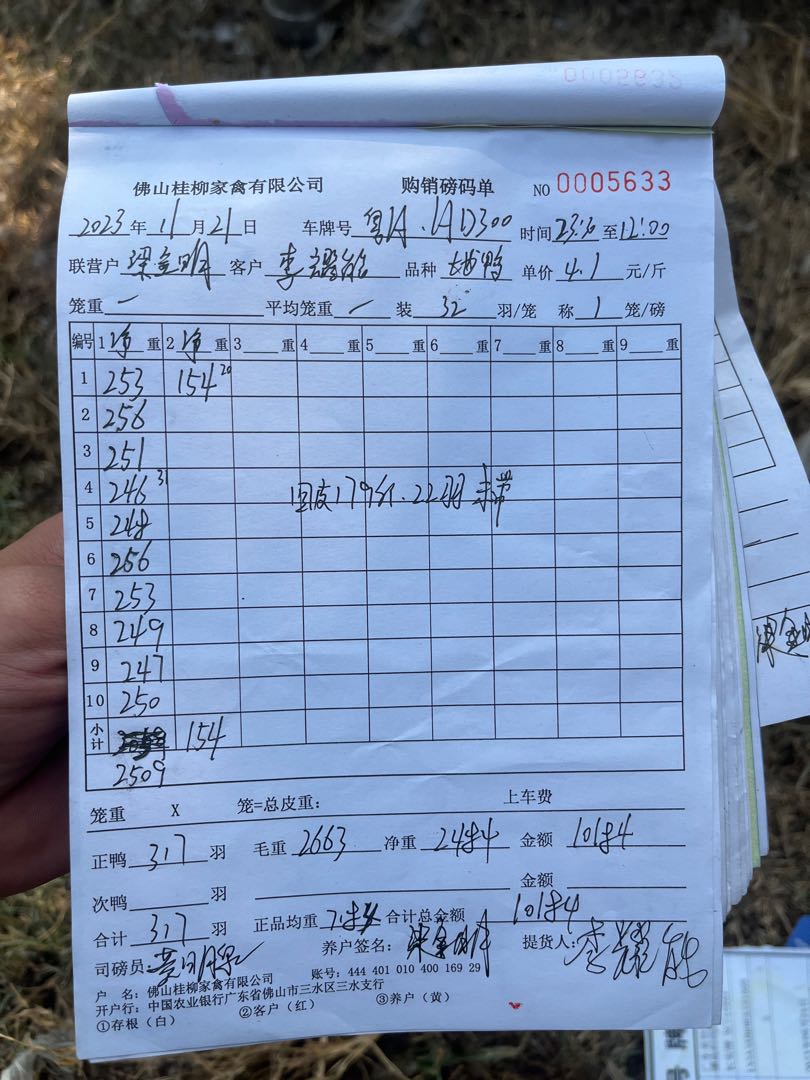 0005632
佛山桂柳家禽有限公司 购销磅码单 NO 0005633
2023年11月21日 车牌号 粤A 时间 至12:00
联营户 梁金明 客户 李耀能 品种 鸭 单价 4.1 元/斤
笼重 一 平均笼重 一 装 32 羽/笼 称 1 笼/磅
编号 1净重 2净重 3 重 4 重 5 重 6 重 7 重 8 重 9 重
1 253 154 20
2 256
3 251
4 246 31
5 248
6 256
7 253
8 249
9 247
10 250
回皮179斤.22羽
小计 154
2509
笼重 X 笼=总皮重: 上车费
正鸭 317 羽 毛重 2663 净重 2484 金额 10184
次鸭 羽 金额
合计 317 羽 正品均重 7.84 合计总金额 10184
司磅员 养户签名: 梁金明 提货人: 李耀能
户 名: 佛山桂柳家禽有限公司 账号: 444 401 010 400 169 29
开户行: 中国农业银行广东省佛山市三水区三水支行
①存根(白) ②客户(红) ③养户(黄)